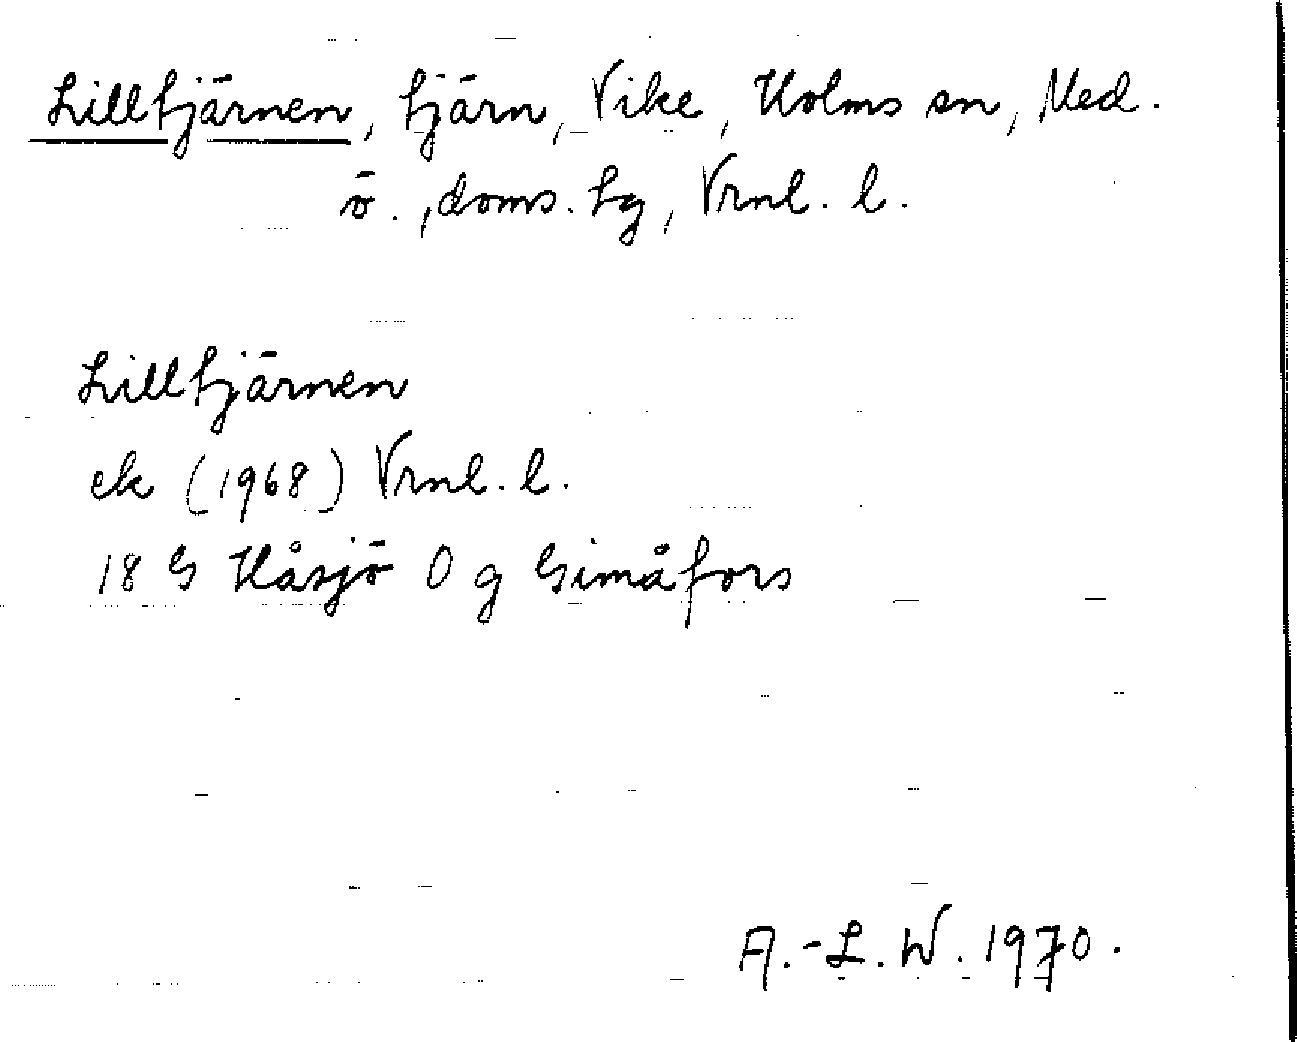 Lilltjärnen, tjärn, Vike, Holms sn, Med.
ö., doms. tg, Vrnl. l.
Lilltjärnen
ek (1968) Vrnl. l.
18 G Håsjö 0 g Gimåfors
A.-L. W. 1970.